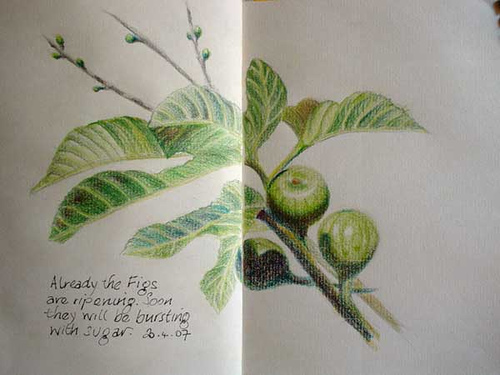 Already the Figs
are ripening. Soon
they will be bursting
with sugar. 20.4.07